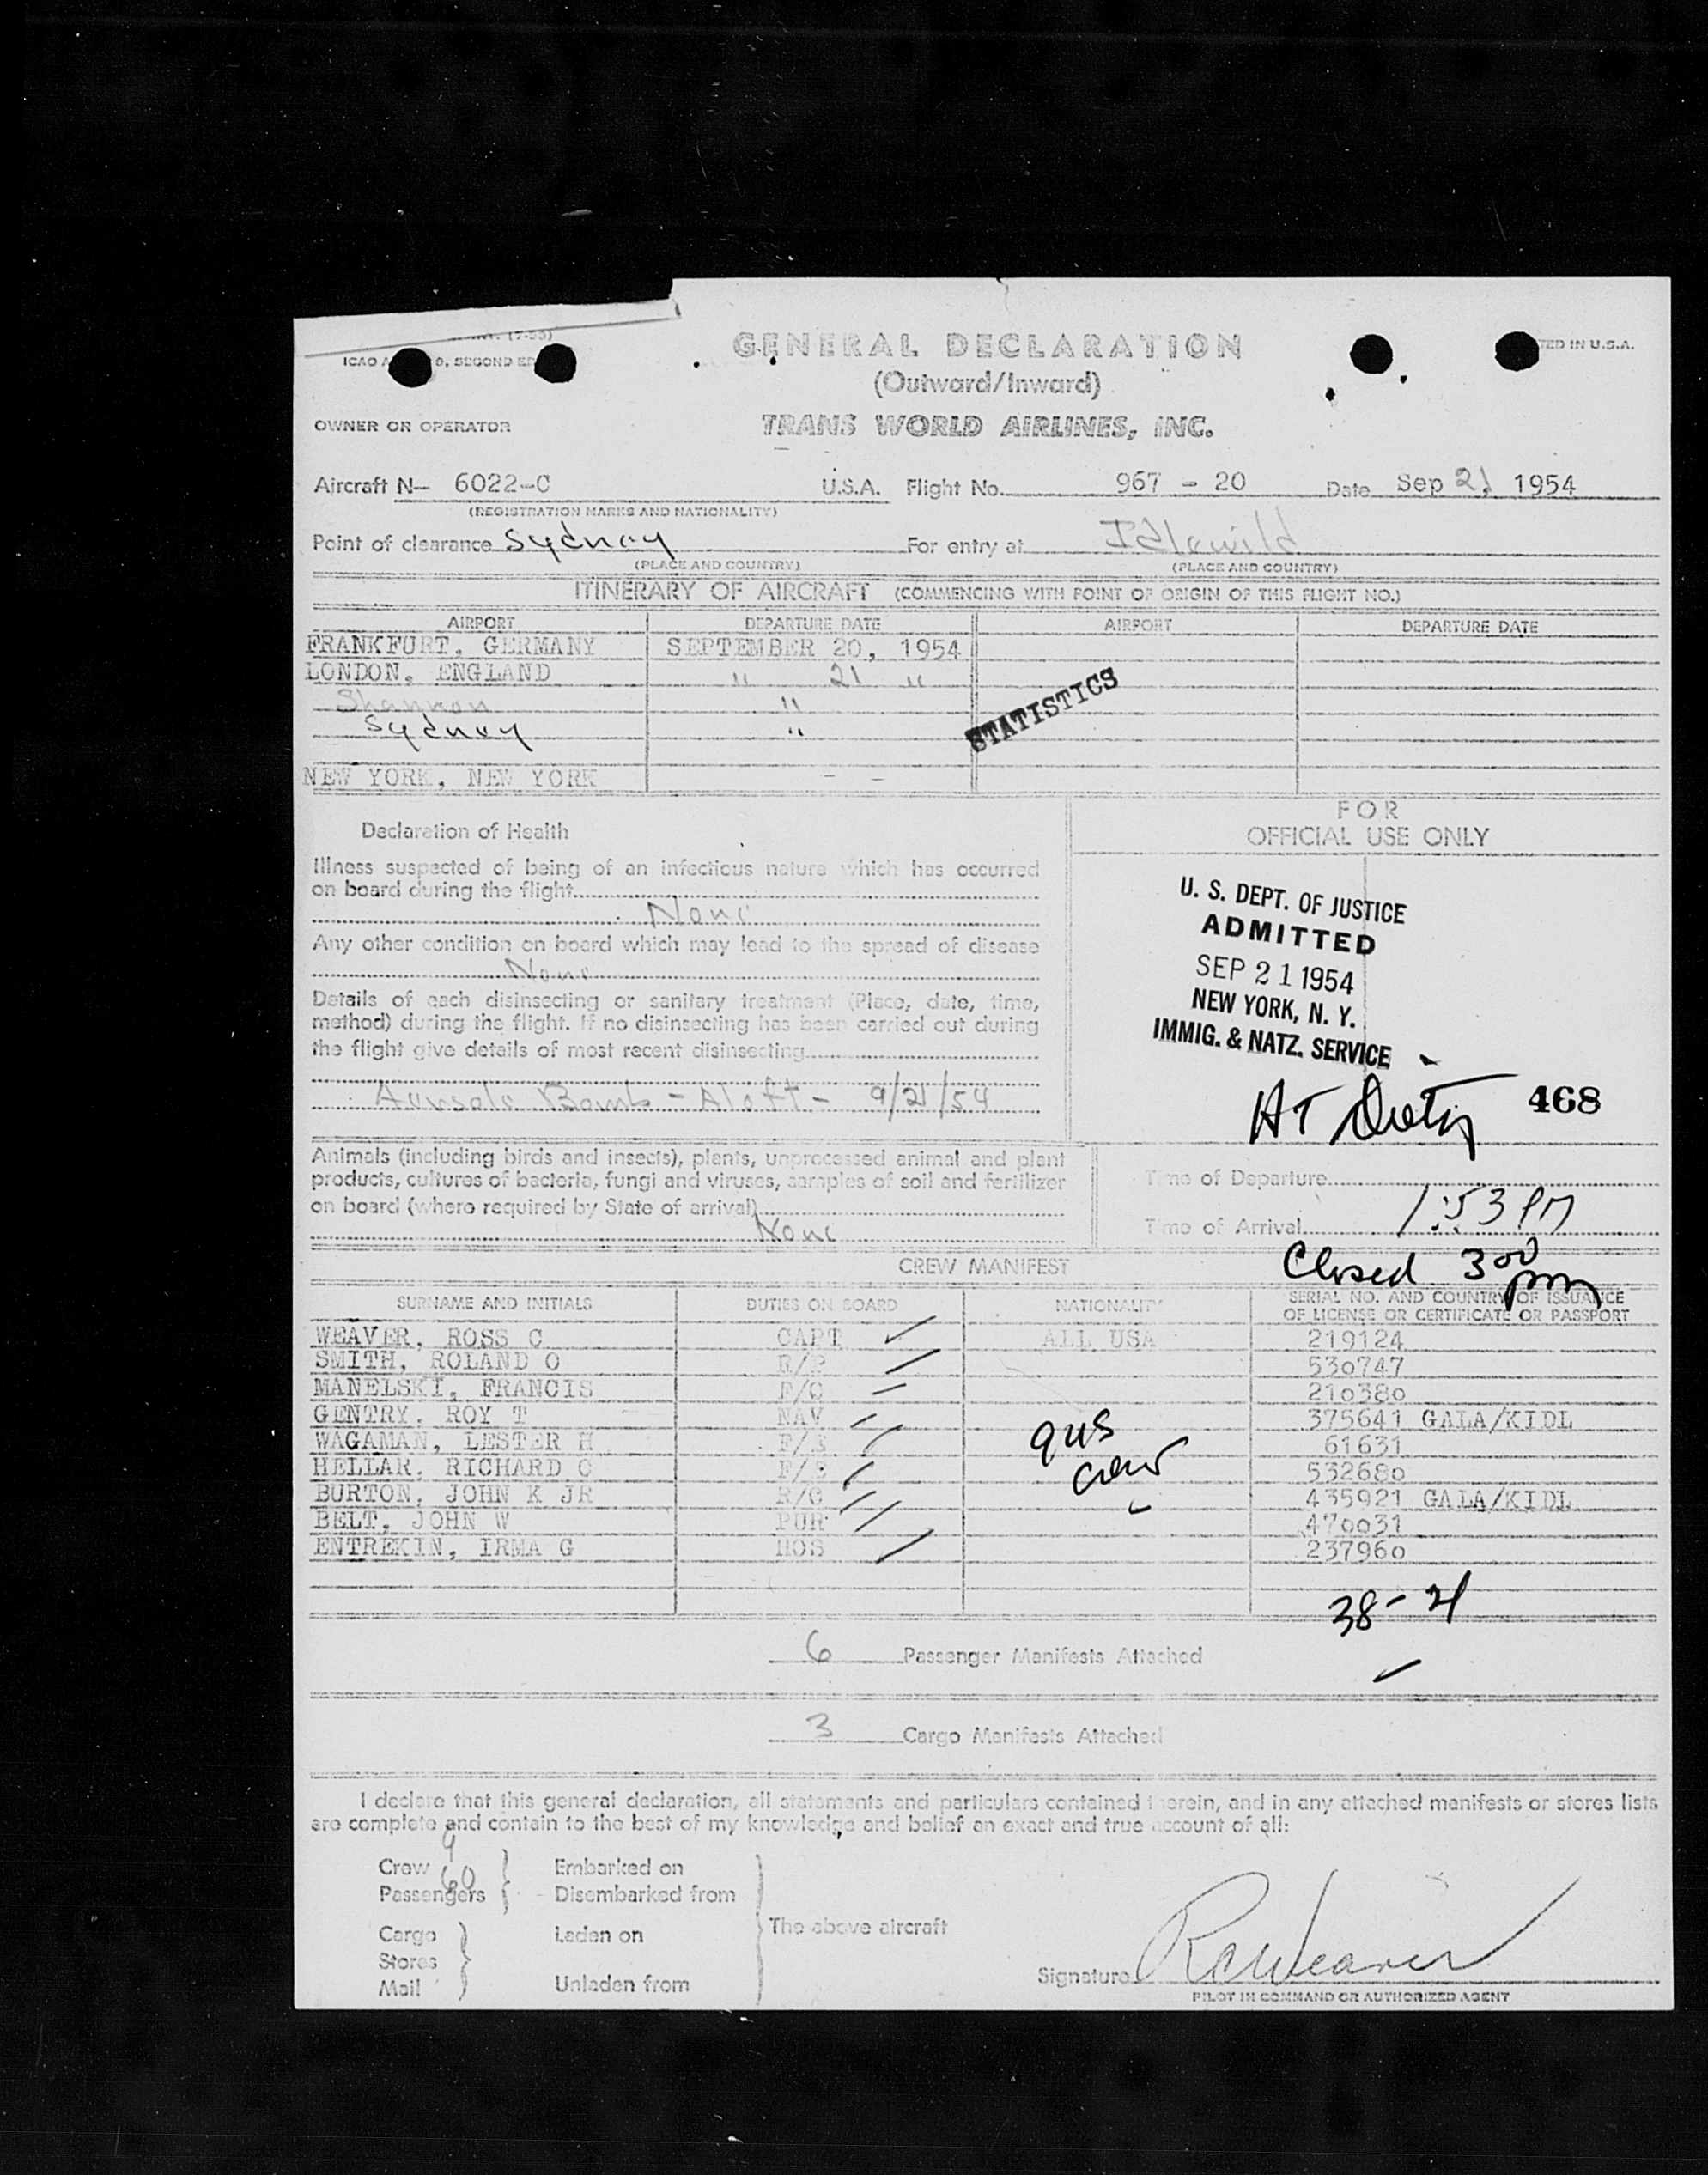 (7-53)
ICAO A 9, SECOND ED
GENERAL DECLARATION
TED IN U.S.A.
(Outward/Inward)
OWNER OR OPERATOR
TRANS WORLD AIRLINES, INC.
Aircraft N— 6022-C U.S.A. Flight No. 967 - 20 Date Sep 21 1954
(REGISTRATION MARKS AND NATIONALITY)
Point of clearance Sydney For entry at Idlewild
(PLACE AND COUNTRY) (PLACE AND COUNTRY)
ITINERARY OF AIRCRAFT (COMMENCING WITH POINT OF ORIGIN OF THIS FLIGHT NO.)
AIRPORT DEPARTURE DATE AIRPORT DEPARTURE DATE
FRANKFURT, GERMANY SEPTEMBER 20, 1954
LONDON, ENGLAND " 21 "
Shannon "
Sydney "
STATISTICS
NEW YORK, NEW YORK - -
FOR
OFFICIAL USE ONLY
Declaration of Health
Illness suspected of being of an infectious nature which has occurred
on board during the flight
None
Any other condition on board which may lead to the spread of disease
None
Details of each disinsecting or sanitary treatment (Place, date, time,
method) during the flight. If no disinsecting has been carried out during
the flight give details of most recent disinsecting
Bomb - Aloft - 9/21/54
U. S. DEPT. OF JUSTICE
ADMITTED
SEP 21 1954
NEW YORK, N. Y.
IMMIG. & NATZ. SERVICE
468
Animals (including birds and insects), plants, unprocessed animal and plant
products, cultures of bacteria, fungi and viruses, samples of soil and fertilizer
on board (where required by State of arrival)
None
Time of Departure
Time of Arrival 1:53 PM
Closed 3 00 pm
CREW MANIFEST
SURNAME AND INITIALS DUTIES ON BOARD NATIONALITY SERIAL NO. AND COUNTRY OF ISSUANCE
OF LICENSE OR CERTIFICATE OR PASSPORT
WEAVER, ROSS C CAPT ALL USA 219124
SMITH, ROLAND O 530747
MANELSKI, FRANCIS F/O 210380
GENTRY, ROY T NAV 375641 GALA/KIDL
WAGAMAN, LESTER H 61631
HELLAR, RICHARD C 532680
BURTON, JOHN K JR R/O 435921 GALA/KIDL
BELT, JOHN W PUR 470031
ENTREKIN, IRMA G HOS 237960
9 US
crew
38-21
6 Passenger Manifests Attached
3 Cargo Manifests Attached
I declare that this general declaration, all statements and particulars contained herein, and in any attached manifests or stores lists
are complete and contain to the best of my knowledge and belief an exact and true account of all:
Crew 9 Embarked on
Passengers 60 Disembarked from
The above aircraft
Cargo Laden on
Stores
Mail Unladen from
Signature RCWeaver
PILOT IN COMMAND OR AUTHORIZED AGENT